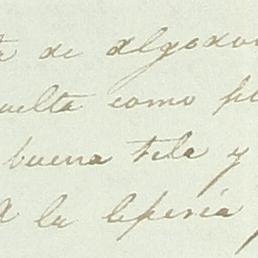 de algodon
uelta como
buena tela y
a la leperia